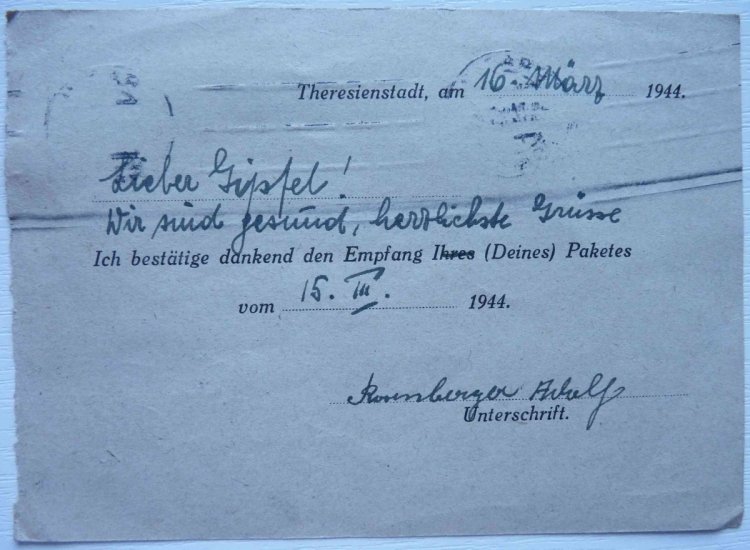 Theresienstadt, am 16. März 1944.
Lieber Gipfel!
Wir sind gesund, herzlichste Grüsse
Ich bestätige dankend den Empfang Ihres (Deines) Paketes
vom 15. III. 1944.
Rosenberger Adolf
Unterschrift.